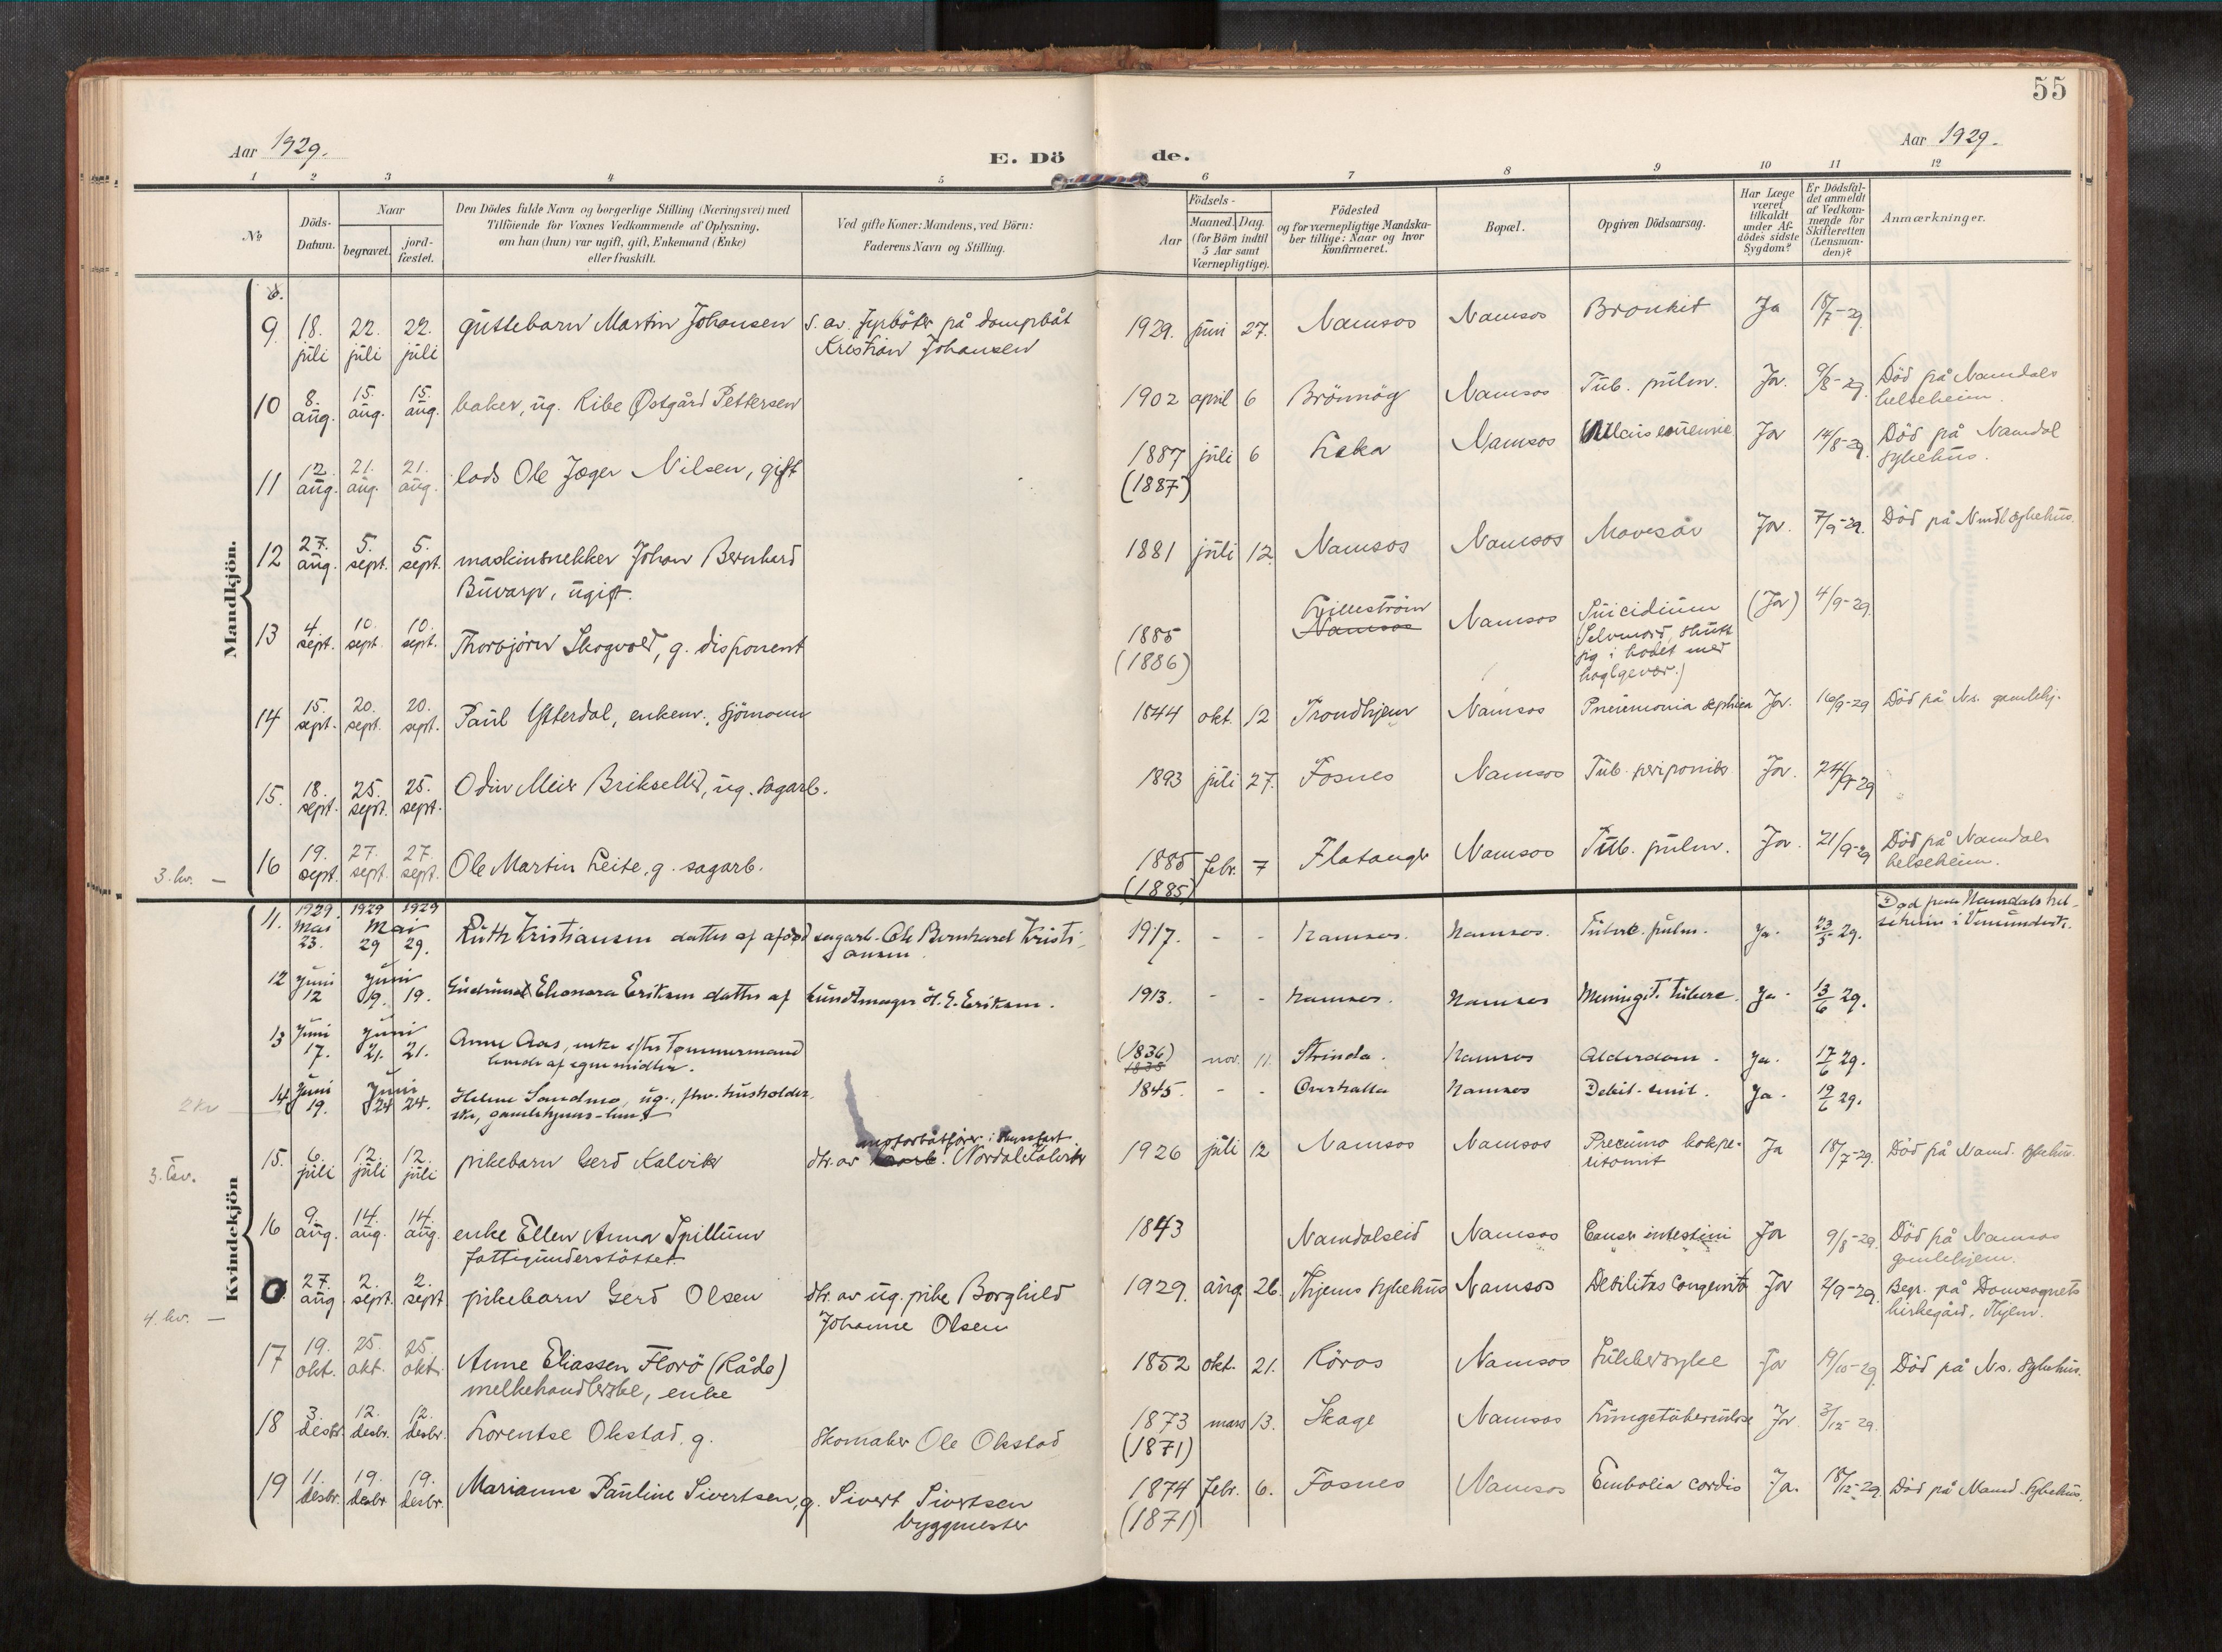 55
Aar 1929.
E. Dö de.
Aar 1929.
1 2 3 4 5 6 7 8 9 10 11 12
№
Döds-Datum.
Naar
begravet.
jord-fæstet.
Den Dödes fulde Navn og borgerlige Stilling (Næringsvei) med
Tilföiende for Voxnes Vedkommende af Oplysning,
om han (hun) var ugift, gift, Enkemand (Enke)
eller fraskilt.
Ved gifte Koner: Mandens, ved Börn:
Faderens Navn og Stilling.
Födsels-
Aar
Maaned. Dag.
(for Börn indtil
5 Aar samt
Værnepligtige).
Födested
og for værnepligtige Mandska-
ber tillige: Naar og hvor
konfirmeret.
Bopæl.
Opgiven Dödsaarsag.
Har Læge
været
tilkaldt
under Af-
dödes sidste
Sygdom?
Er Dödsfal-
det anmeldt
af Vedkom-
mende for
Skifteretten
(Lensman-
den)?
Anmærkninger.
Mandkjön.
9 18. juli 22. juli 22. juli guttebarn Martin Johansen s. av fyrböter på dampbåt 1929. juni 27. Namsos Namsos Bronkit Ja 18/7-29
Kristian Johansen
10 8. aug. 15. aug. 15. aug. baker, ug. Ribe Østgård Pettersen 1902 april 6 Brönnöy Namsos Tub. pulm. Ja. 9/8-29 Död på Namdals
helseheim.
11 12. aug. 21. aug. 21. aug. lods Ole Jæger Nilsen, gift 1887 juli 6 Leka Namsos Ja 14/8-29 Död på Namdal
(1887) sykehus.
12 27. aug. 5. sept. 5. sept. maskinsnekker Johan Bernhard 1881 juli 12 Namsos Namsos Mavesår Ja. 7/9-29. Död på Nmdl sykehus.
Buvarp, ugift.
13 4. sept. 10. sept. 10. sept. Thorbjörn Skogvold, g. disponent 1885 Namsos Namsos Suicidium (Ja) 4/9-29
(1886) Selvmord, skutt
sig i hodet med
haglgevær.)
14 15. sept. 20. sept. 20. sept. Paul Ytterdal, enkem., sjömann 1844 okt. 12 Trondhjem Namsos Pneumonia Ja. 16/9-29 Död på Ns. gamlehj.
15. 18. sept. 25. sept. 25. sept. Odin Meier, ug. sagarb. 1893 juli 27. Fosnes Namsos Tub. Ja. 24/9-29
3. kv. —
16 19. sept. 27. sept. 27. sept. Ole Martin Leite, g. sagarb. 1885 febr. 7 Flatanger Namsos Tub. pulm. Ja. 21/9-29 Död på Namdals
(1885) helseheim.
Kvindekjön
11. 1929 Mai 23. 1929 1929 Mai 29 29. Ruth Kristiansen datter af afdød sagarb. Ole Bernhard Kristi- 1917. - - Namsos. Namsos. Tuberc. pulm. Ja. 23/5 29. Død paa Namdals hel-
ansen seheim i Vemundvik.
12 Juni 12 Juni 19. 19. Eleonora Eriksen datter af 1913. - - Namsos. Namsos Meningit. tuberc. Ja. 13/6 29.
13 Juni 17. Juni 21. 21. Anne Aas, enke efter Tømmermand (1836) 1835 nov. 11. Strinda. Namsos Alderdom. Ja. 17/6 29.
levede af egne midler.
2 kv
14 Juni 19. Juni 24 24. Helene Sandmo, ug., fhv. husholder- 1845. - - Overhalla Namsos Debil. senil. Ja. 19/6 29.
ske, gamlehjems-lem
3. kv.
15. 6. juli 12. juli 12. juli pikebarn Gerd Kalvik motorbåtförer i
dtr. av Nordal Kalvik 1926 juli 12 Namsos Namsos Ja 18/7-29. Död på Namd. sykehus.
16 9. aug. 14. aug. 14. aug. enke Ellen Anna Spillum 1843 Namdalseid Namsos Cancer intestini Ja 9/8-29. Död på Namsos
fattigunderstöttet gamlehjem.
27. aug 2. sept. 2. sept pikebarn Gerd Olsen dtr. av ug. pike Borghild 1929. aug. 26. Thjems sykehus Namsos Debilitas congenita Ja 2/9-29. Begr. på Domsognets
4. kv. — Johanne Olsen kirkegård, Thjem.
17 19. okt. 25. okt. 25. okt. Anne Eliassen Florö (Råde) 1852 okt. 21. Röros Namsos Sukkersyke Ja 19/10-29 Död på Ns. sykehus.
melkehandlerske, enke
18 3. desbr. 12. desbr. 12. desbr. Lorentse Okstad, g. skomaker Ole Okstad 1873 mars 13. Skage Namsos Lungetuberkulose Ja. 3/12-29.
(1871)
19 11. desbr. 19. desbr 19. desbr. Marianne Pauline Sivertsen, g. Sivert Sivertsen 1874 febr. 6. Fosnes Namsos Embolia cordis Ja. 18/12-29. Död på Namd. sykehus.
byggmester (1871)